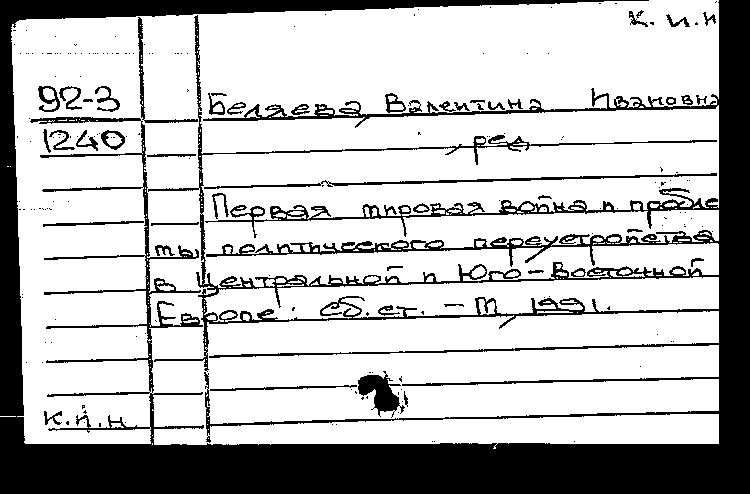 К. И. Н
92-3
Беляева, Валентина Ивановна
1240
, ред.
Первая мировая война и пробле
мы политического переустройства
в Центральной и Юго-Восточной
Европе: сб. ст. - М, 1991.
К.И.Н.